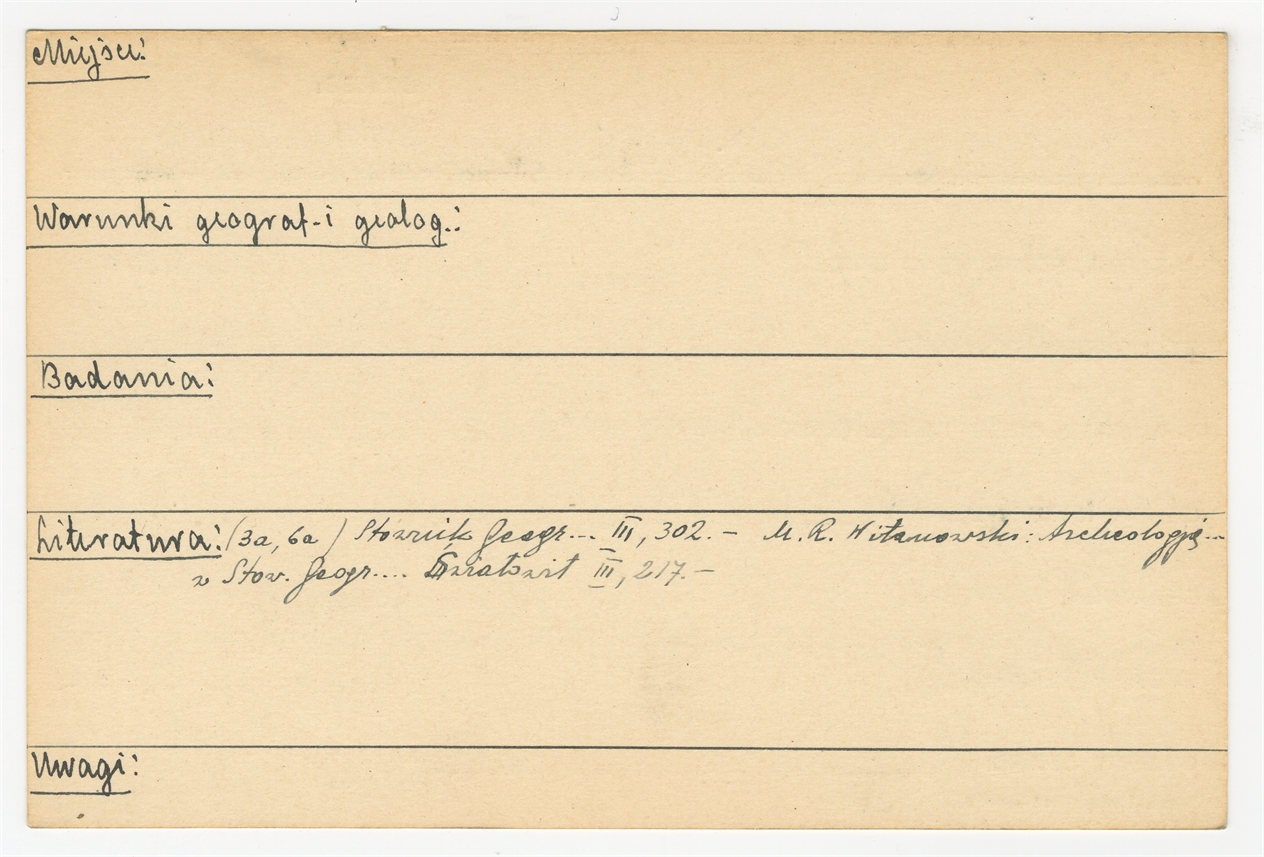 Miejsce:
Warunki geograf-i geolog.:
Badania:
Literatura: (3a, 6a) Słownik Geogr... III, 302. – M. R. Witanowski: Archeologja...
w Słow. Geogr.... Światowit III, 217. –
Uwagi: